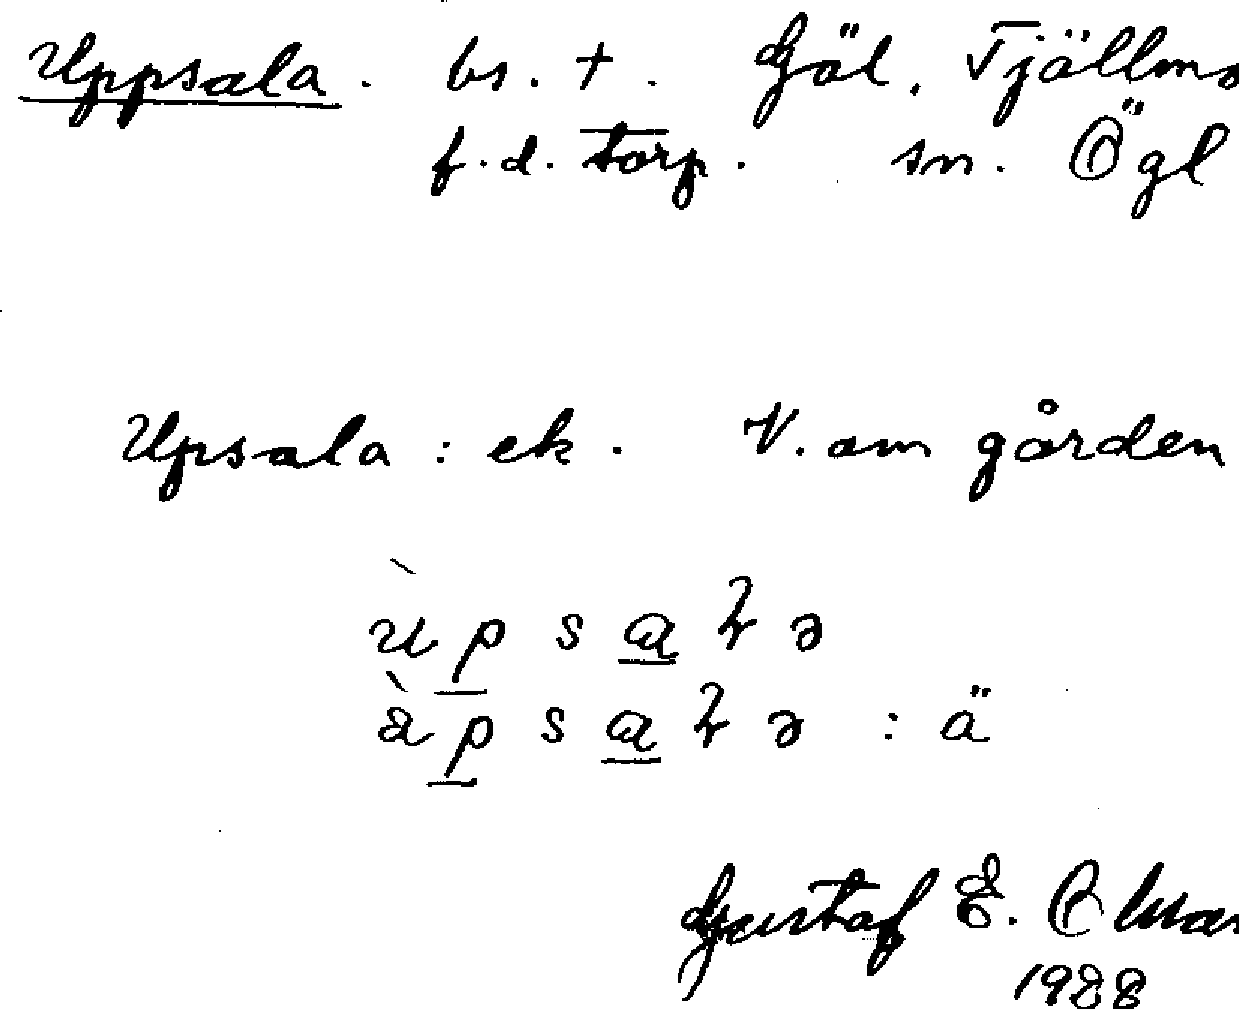 Uppsala. bs. +. Göl, Tjällmo
f.d. torp. sn. Ögl
Upsala : ek. V. om gården
ùpsaɫə
àpsaɫə : ä
Gustaf E.
1988